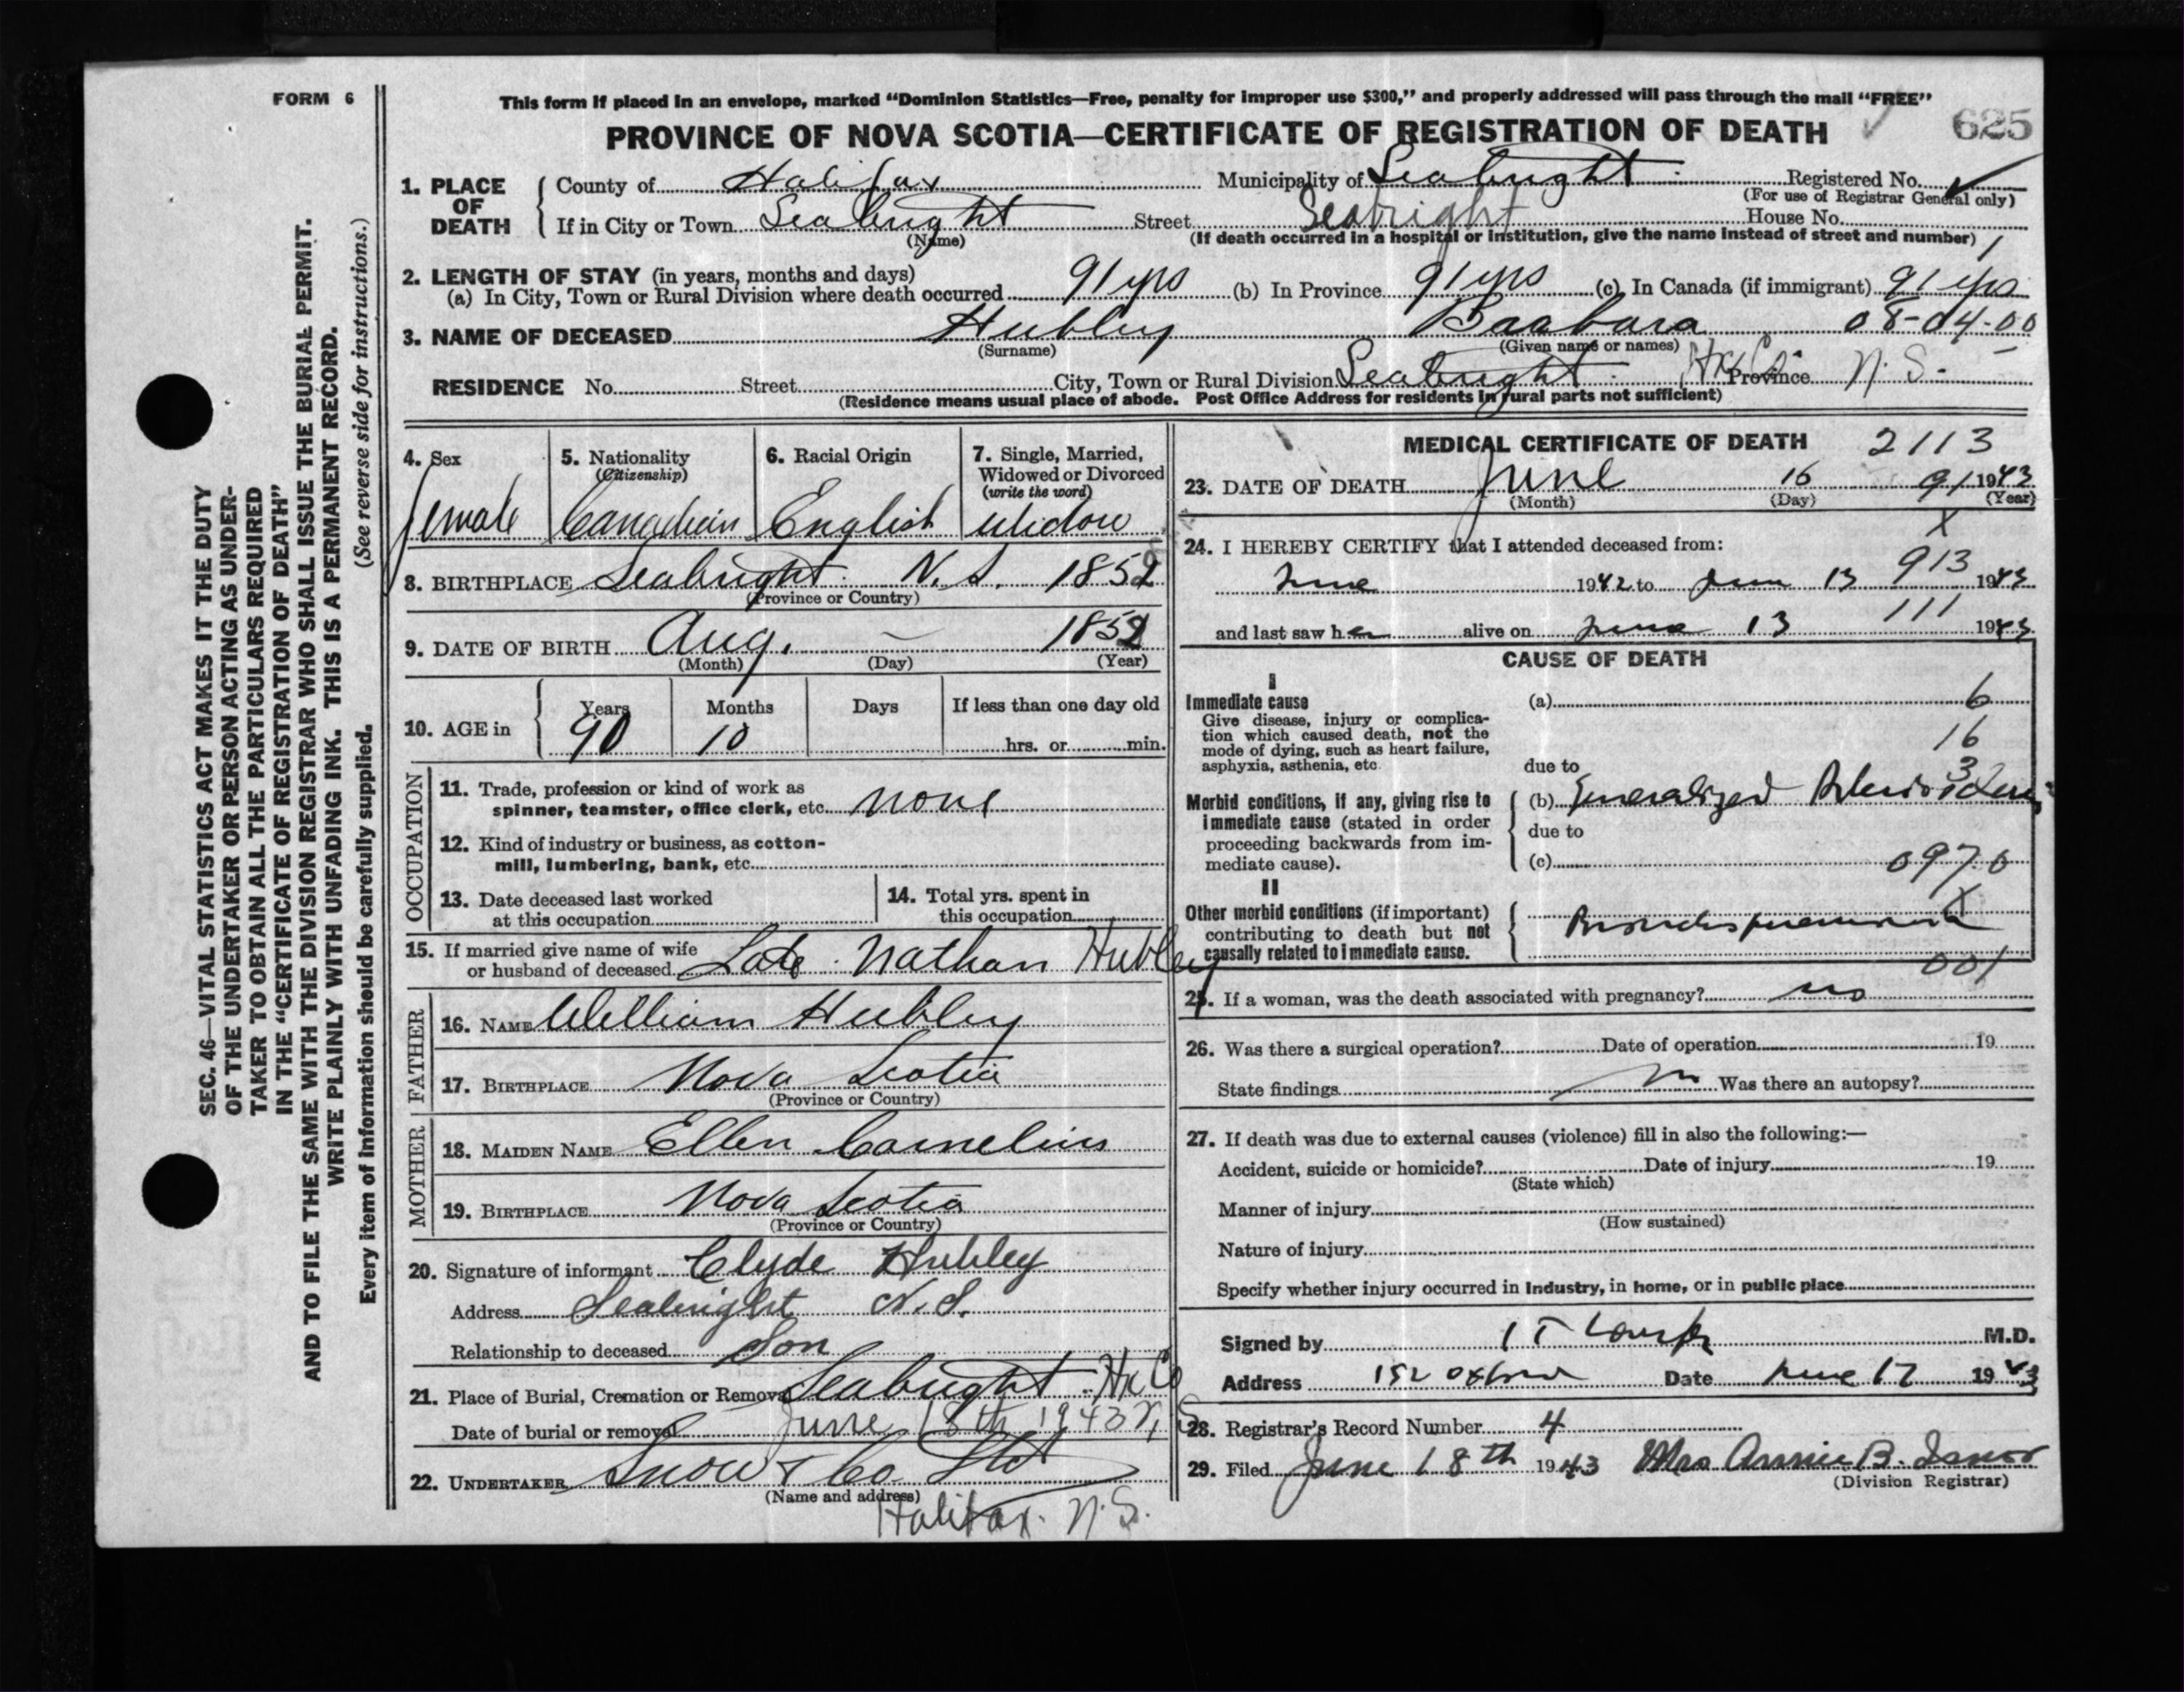 FORM 6
This form if placed in an envelope, marked “Dominion Statistics—Free, penalty for improper use $300,” and properly addressed will pass through the mail “FREE”
PROVINCE OF NOVA SCOTIA—CERTIFICATE OF REGISTRATION OF DEATH 625
1. PLACE OF DEATH County of Halifax Municipality of Seabright Registered No.
(For use of Registrar General only)
If in City or Town Seabright Street Seabright House No.
(Name) (If death occurred in a hospital or institution, give the name instead of street and number)
2. LENGTH OF STAY (in years, months and days)
(a) In City, Town or Rural Division where death occurred 91 yrs (b) In Province 91 yrs (c) In Canada (if immigrant) 91 yrs
3. NAME OF DECEASED Hubley Baabara 08-04-00
(Surname) (Given name or names)
RESIDENCE No. Street City, Town or Rural Division Seabright Hx Co. Province N. S.
(Residence means usual place of abode. Post Office Address for residents in rural parts not sufficient)
4. Sex 5. Nationality (Citizenship) 6. Racial Origin 7. Single, Married, Widowed or Divorced (write the word)
female Canadian English Widow
8. BIRTHPLACE Seabright N. S. 1852
(Province or Country)
9. DATE OF BIRTH Aug. — 1852
(Month) (Day) (Year)
10. AGE in Years Months Days If less than one day old
90 10 hrs. or min.
OCCUPATION
11. Trade, profession or kind of work as
spinner, teamster, office clerk, etc. none
12. Kind of industry or business, as cotton-
mill, lumbering, bank, etc.
13. Date deceased last worked
at this occupation
14. Total yrs. spent in
this occupation
15. If married give name of wife
or husband of deceased Late Nathan Hubley
FATHER
16. NAME William Hubley
17. BIRTHPLACE Nova Scotia
(Province or Country)
MOTHER
18. MAIDEN NAME Ellen Cornelius
19. BIRTHPLACE Nova Scotia
(Province or Country)
20. Signature of informant Clyde Hubley
Address Seabright N. S.
Relationship to deceased Son
21. Place of Burial, Cremation or Removal Seabright Hx Co
Date of burial or removal June 18th 1943 N. S
22. UNDERTAKER Snow & Co Ltd
(Name and address)
Halifax. N. S.
MEDICAL CERTIFICATE OF DEATH 2113
23. DATE OF DEATH June 16 91 1943
(Month) (Day) (Year)
X
24. I HEREBY CERTIFY that I attended deceased from:
June 1942 to June 13 913 1943
and last saw her alive on June 13 111 1943
CAUSE OF DEATH
I
Immediate cause (a) 6
Give disease, injury or complica-
tion which caused death, not the
mode of dying, such as heart failure, 16
asphyxia, asthenia, etc.
due to 3
Morbid conditions, if any, giving rise to (b) Generalized
immediate cause (stated in order due to
proceeding backwards from im-
mediate cause). (c) 097.0
II X
Other morbid conditions (if important) Bronchopneumonia
contributing to death but not
causally related to immediate cause. 001
25. If a woman, was the death associated with pregnancy? no
26. Was there a surgical operation? Date of operation 19
State findings Was there an autopsy?
27. If death was due to external causes (violence) fill in also the following:—
Accident, suicide or homicide? Date of injury 19
(State which)
Manner of injury
(How sustained)
Nature of injury
Specify whether injury occurred in industry, in home, or in public place
Signed by M.D.
Address 152 Oxford Date June 17 1943
28. Registrar's Record Number 4
29. Filed June 18th 1943 Mrs Annie B.
(Division Registrar)
SEC. 46—VITAL STATISTICS ACT MAKES IT THE DUTY
OF THE UNDERTAKER OR PERSON ACTING AS UNDER-
TAKER TO OBTAIN ALL THE PARTICULARS REQUIRED
IN THE “CERTIFICATE OF REGISTRATION OF DEATH”
AND TO FILE THE SAME WITH THE DIVISION REGISTRAR WHO SHALL ISSUE THE BURIAL PERMIT.
WRITE PLAINLY WITH UNFADING INK. THIS IS A PERMANENT RECORD.
Every item of information should be carefully supplied. (See reverse side for instructions.)